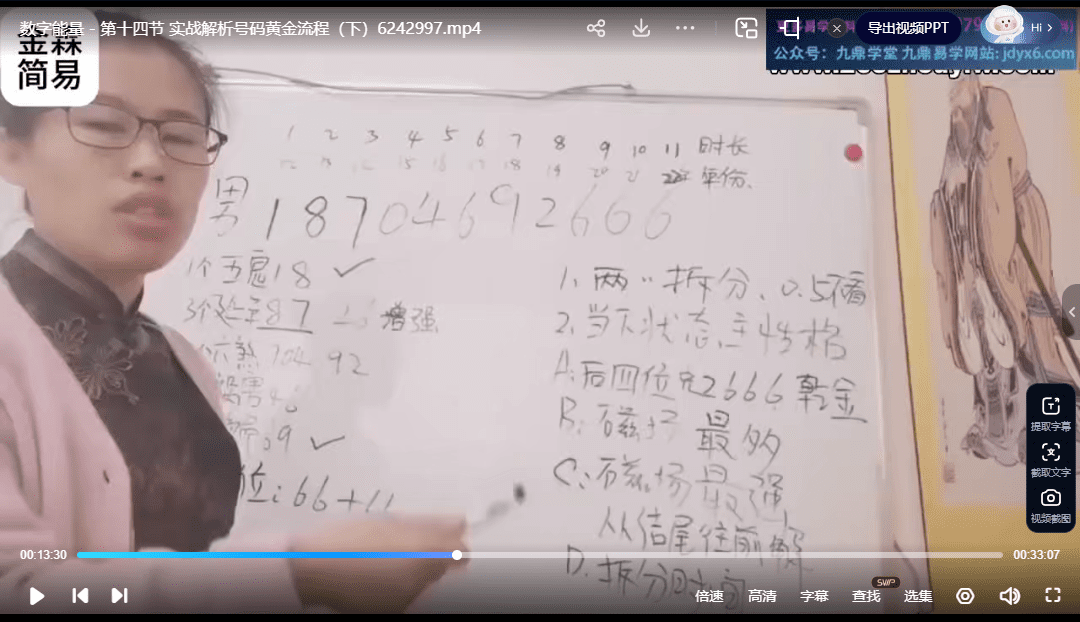 数字能量 - 第十四节 实战解析号码黄金流程（下）6242997.mp4
导出视频PPT
Hi
公众号：九鼎学堂 九鼎易学网站: jdyx6.com
金霖
简易
1 2 3 4 5 6 7 8 9 10 11 时长
15 18 19 20 21 年份
男 18704692666
1个五鬼18 ✓
3个延年87 增强
六煞104 92
祸害46
69 ✓
位：66+11
1、两两拆分、0.5不看
2、当下状态主性格
A：后四位先2666乾金
B：磁场最多
C：磁场最强
从结尾往前解
D、拆分时
提取字幕
截取文字
视频截图
00:13:30
00:33:07
倍速 高清 字幕 查找 SWP 选集